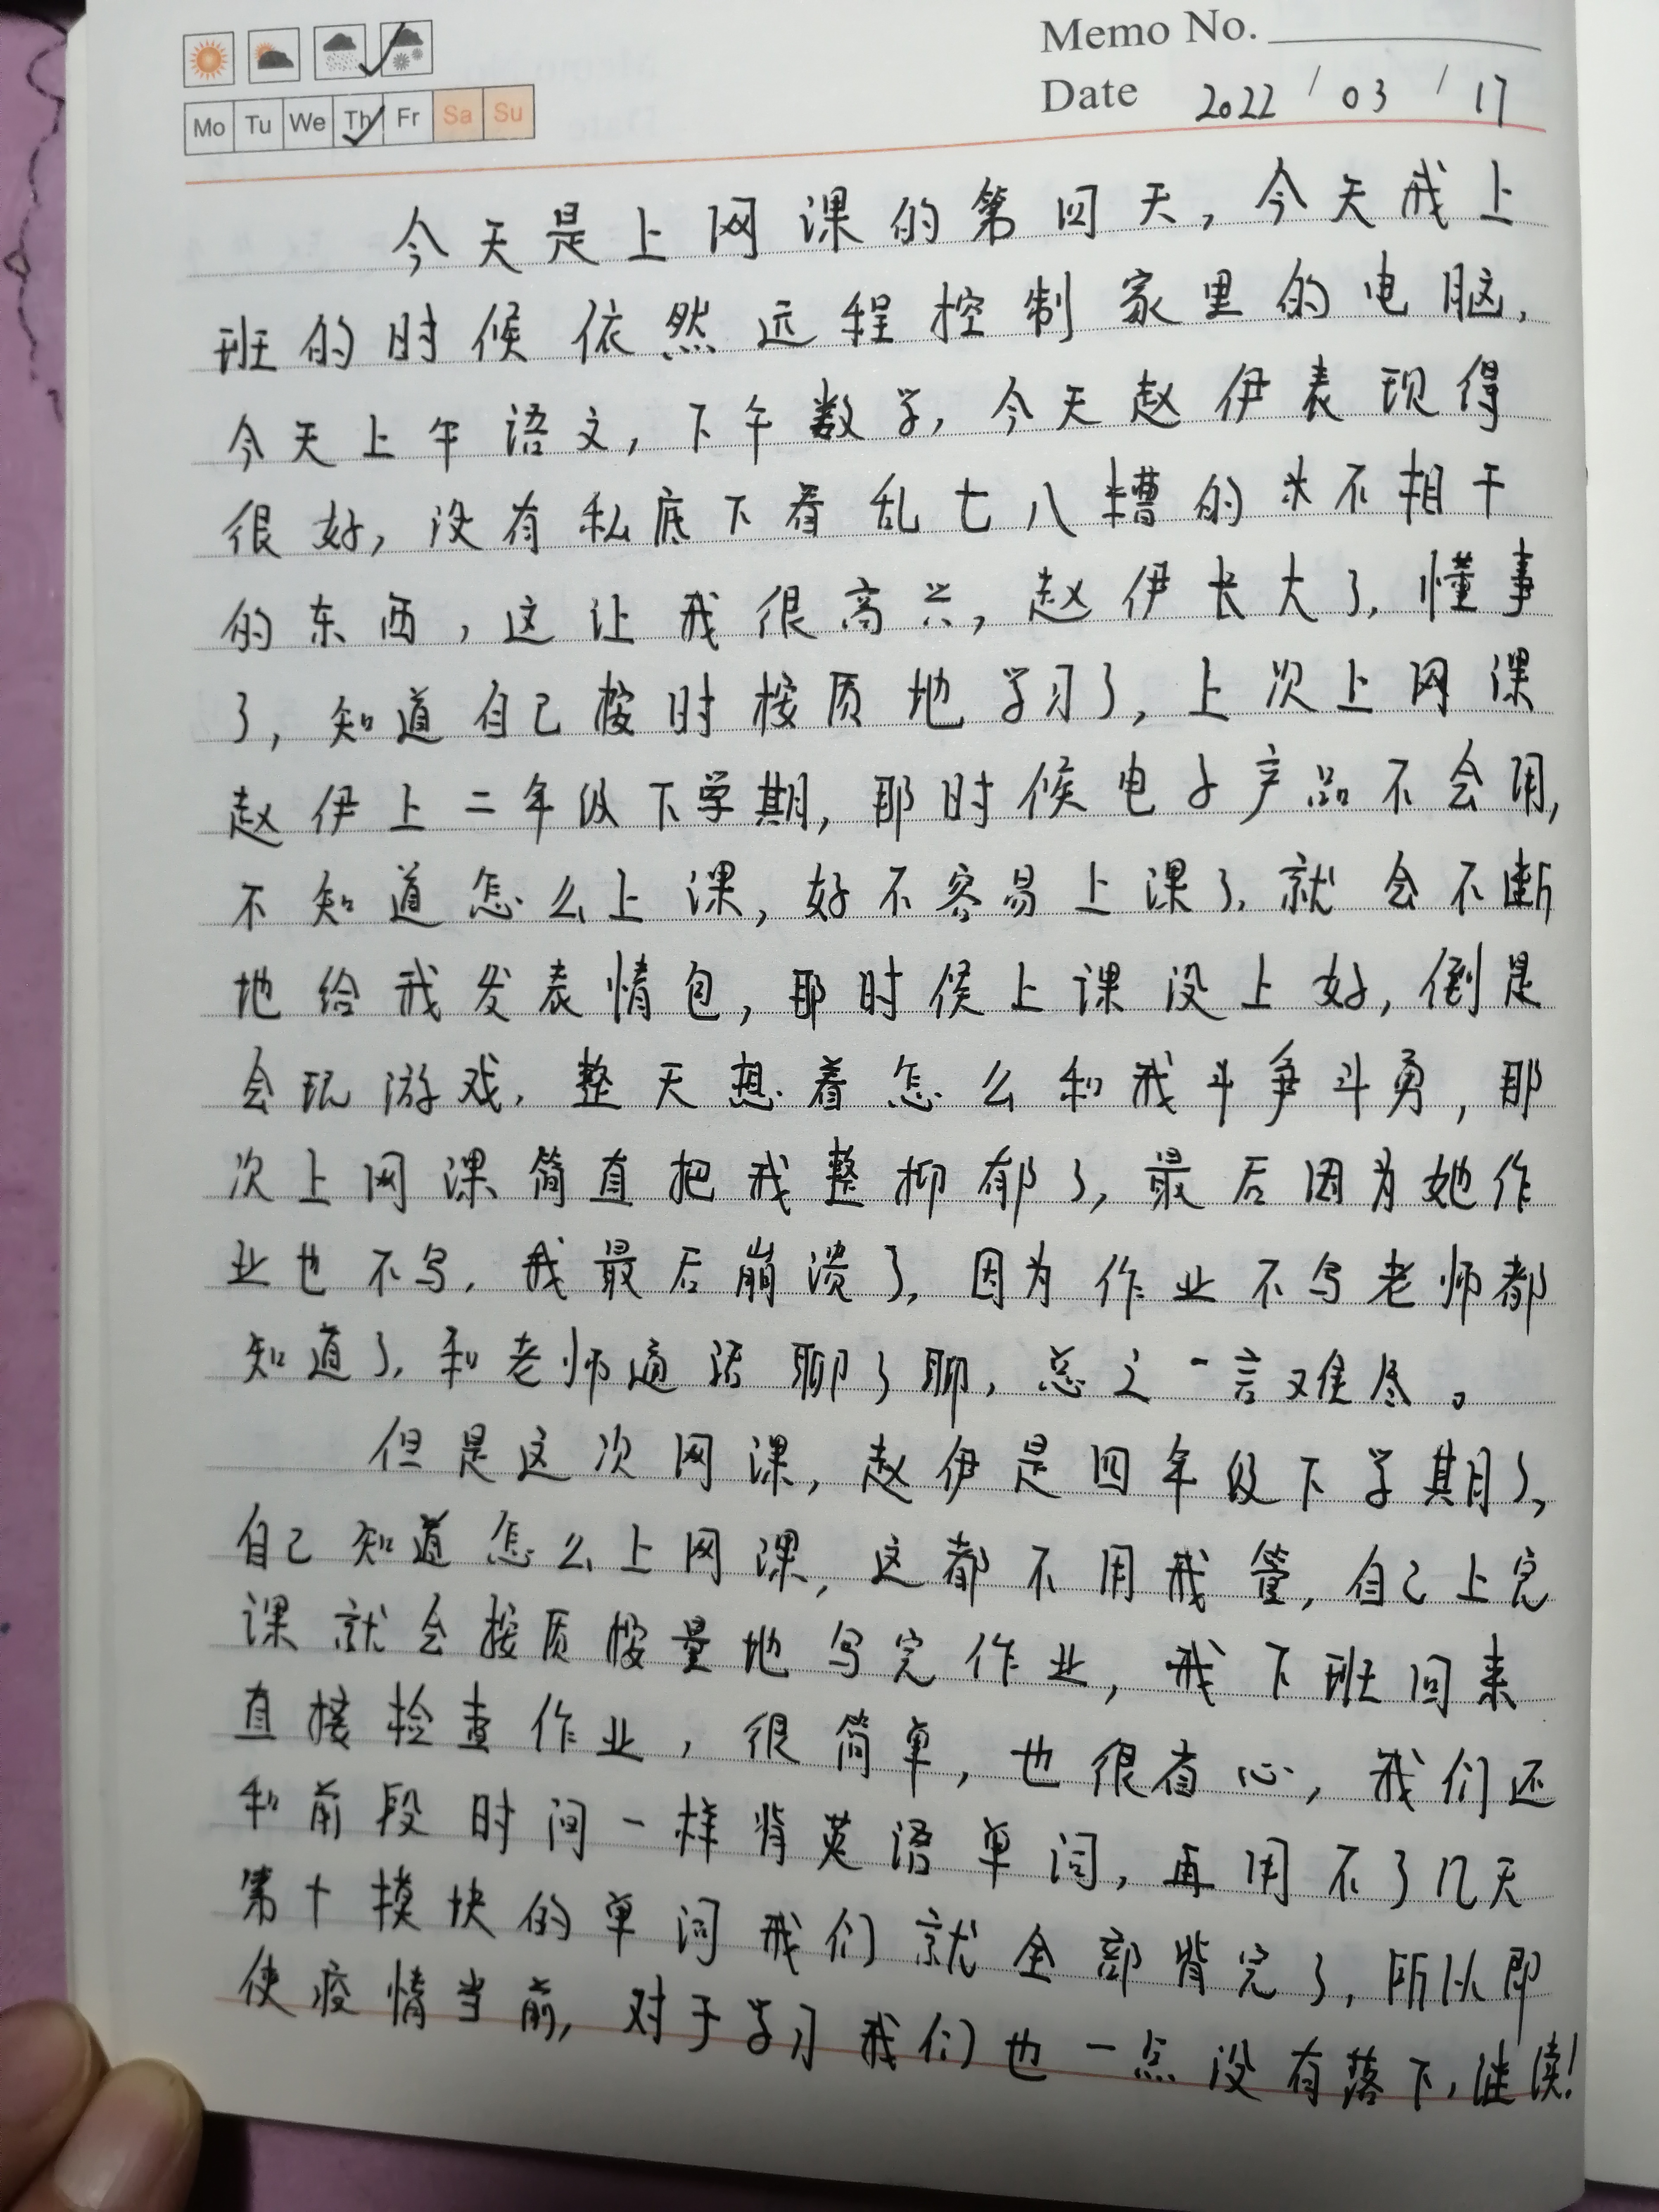 Memo No.
Mo Tu We Th Fr Sa Su
Date 2022 / 03 / 17
今天是上网课的第四天，今天我上
班的时候依然远程控制家里的电脑，
今天上午语文，下午数学，今天赵伊表现得
很好，没有私底下看乱七八糟的 不相干
的东西，这让我很高兴，赵伊长大了，懂事
了，知道自己按时按质地学习了，上次上网课
赵伊上二年级下学期，那时候电子产品不会用，
不知道怎么上课，好不容易上课了，就会不断
地给我发表情包，那时候上课没上好，倒是
会玩游戏，整天想着怎么和我斗争斗勇，那
次上网课简直把我整抑郁了，最后因为她作
业也不写，我最后崩溃了，因为作业不写老师都
知道了，和老师通话聊了聊，总之一言难尽。
但是这次网课，赵伊是四年级下学期了，
自己知道怎么上网课，这都不用我管，自己上完
课就会按质按量地写完作业，我下班回来
直接检查作业，很简单，也很省心，我们还
和前段时间一样背英语单词，再用不了几天
第十模块的单词我们就全部背完了，所以即
使疫情当前，对于学习我们也一点没有落下，继续！